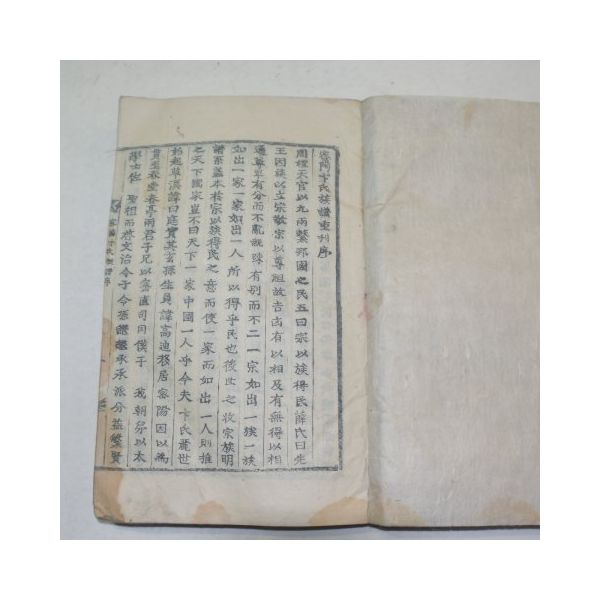 密陽卞氏族譜重刊序
周禮天官以九兩繫邦國之民五曰宗以族得民薛氏曰先
王因族以立宗敬宗以尊祖故吉凶有以相及有無得以相
通尊卑有分而不亂親疎有別而不二一宗如出一族一族
如出一家一家如出一人所以得乎民也後世之收宗族明
譜系盖本於宗以族得民之意而使一家而如出一人則推
之天下國家豈不曰天下一家中國一人乎今夫卞氏麗世
始起草溪諱曰庭實其玄孫生員諱高迪移居密陽因以為
貫至春堂春亭兩君子兄以密直司同僕子 我朝弟以太
學士佐 聖祖而啓文治令子令孫讃承承派分益繁賢
密陽卞氏族譜序